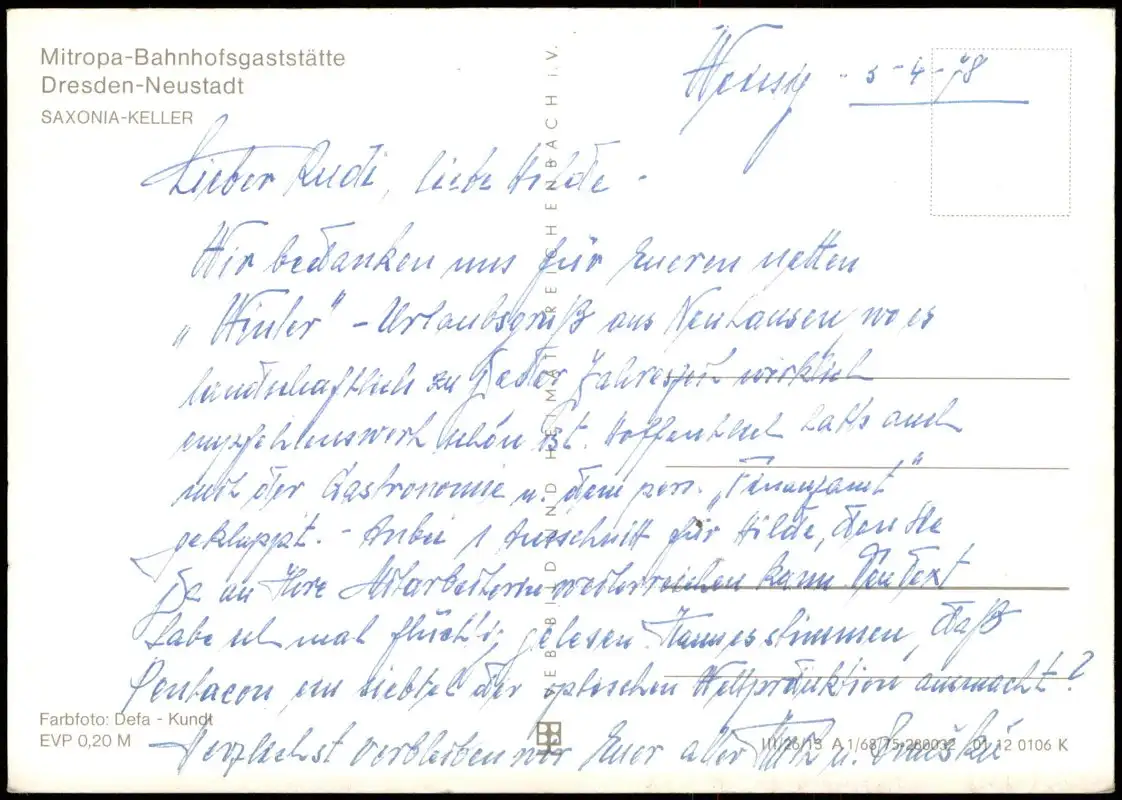 Mitropa-Bahnhofsgaststätte
Dresden-Neustadt
SAXONIA-KELLER
5-4-78
Lieber Rudi, liebe Hilde -
Wir bedanken uns für Eueren netten
„Winter" - Urlaubsgruß aus Neuhausen, wo es
landschaftlich zu jeder Jahreszeit wirklich
empfehlenswert schön ist. Hoffentlich hat's auch
mit der Gastronomie u. dem pers. „Finanzamt"
geklappt. - Anbei 1 Ausschnitt für Hilde, den sie
ja an Ihre Mitarbeiterin weiterreichen kann. Den Text
habe ich mal flüchtig gelesen. Kann es stimmen, daß
Pentacon ein siebtel der optischen Weltproduktion ausmacht?
Herzlichst verbleiben wir Euer alter u.
BILD UND HEIMAT REICHENBACH i. V.
Farbfoto: Defa - Kundt
EVP 0,20 M
III/26/13 A 1/68/75-280032 01 12 0106 K